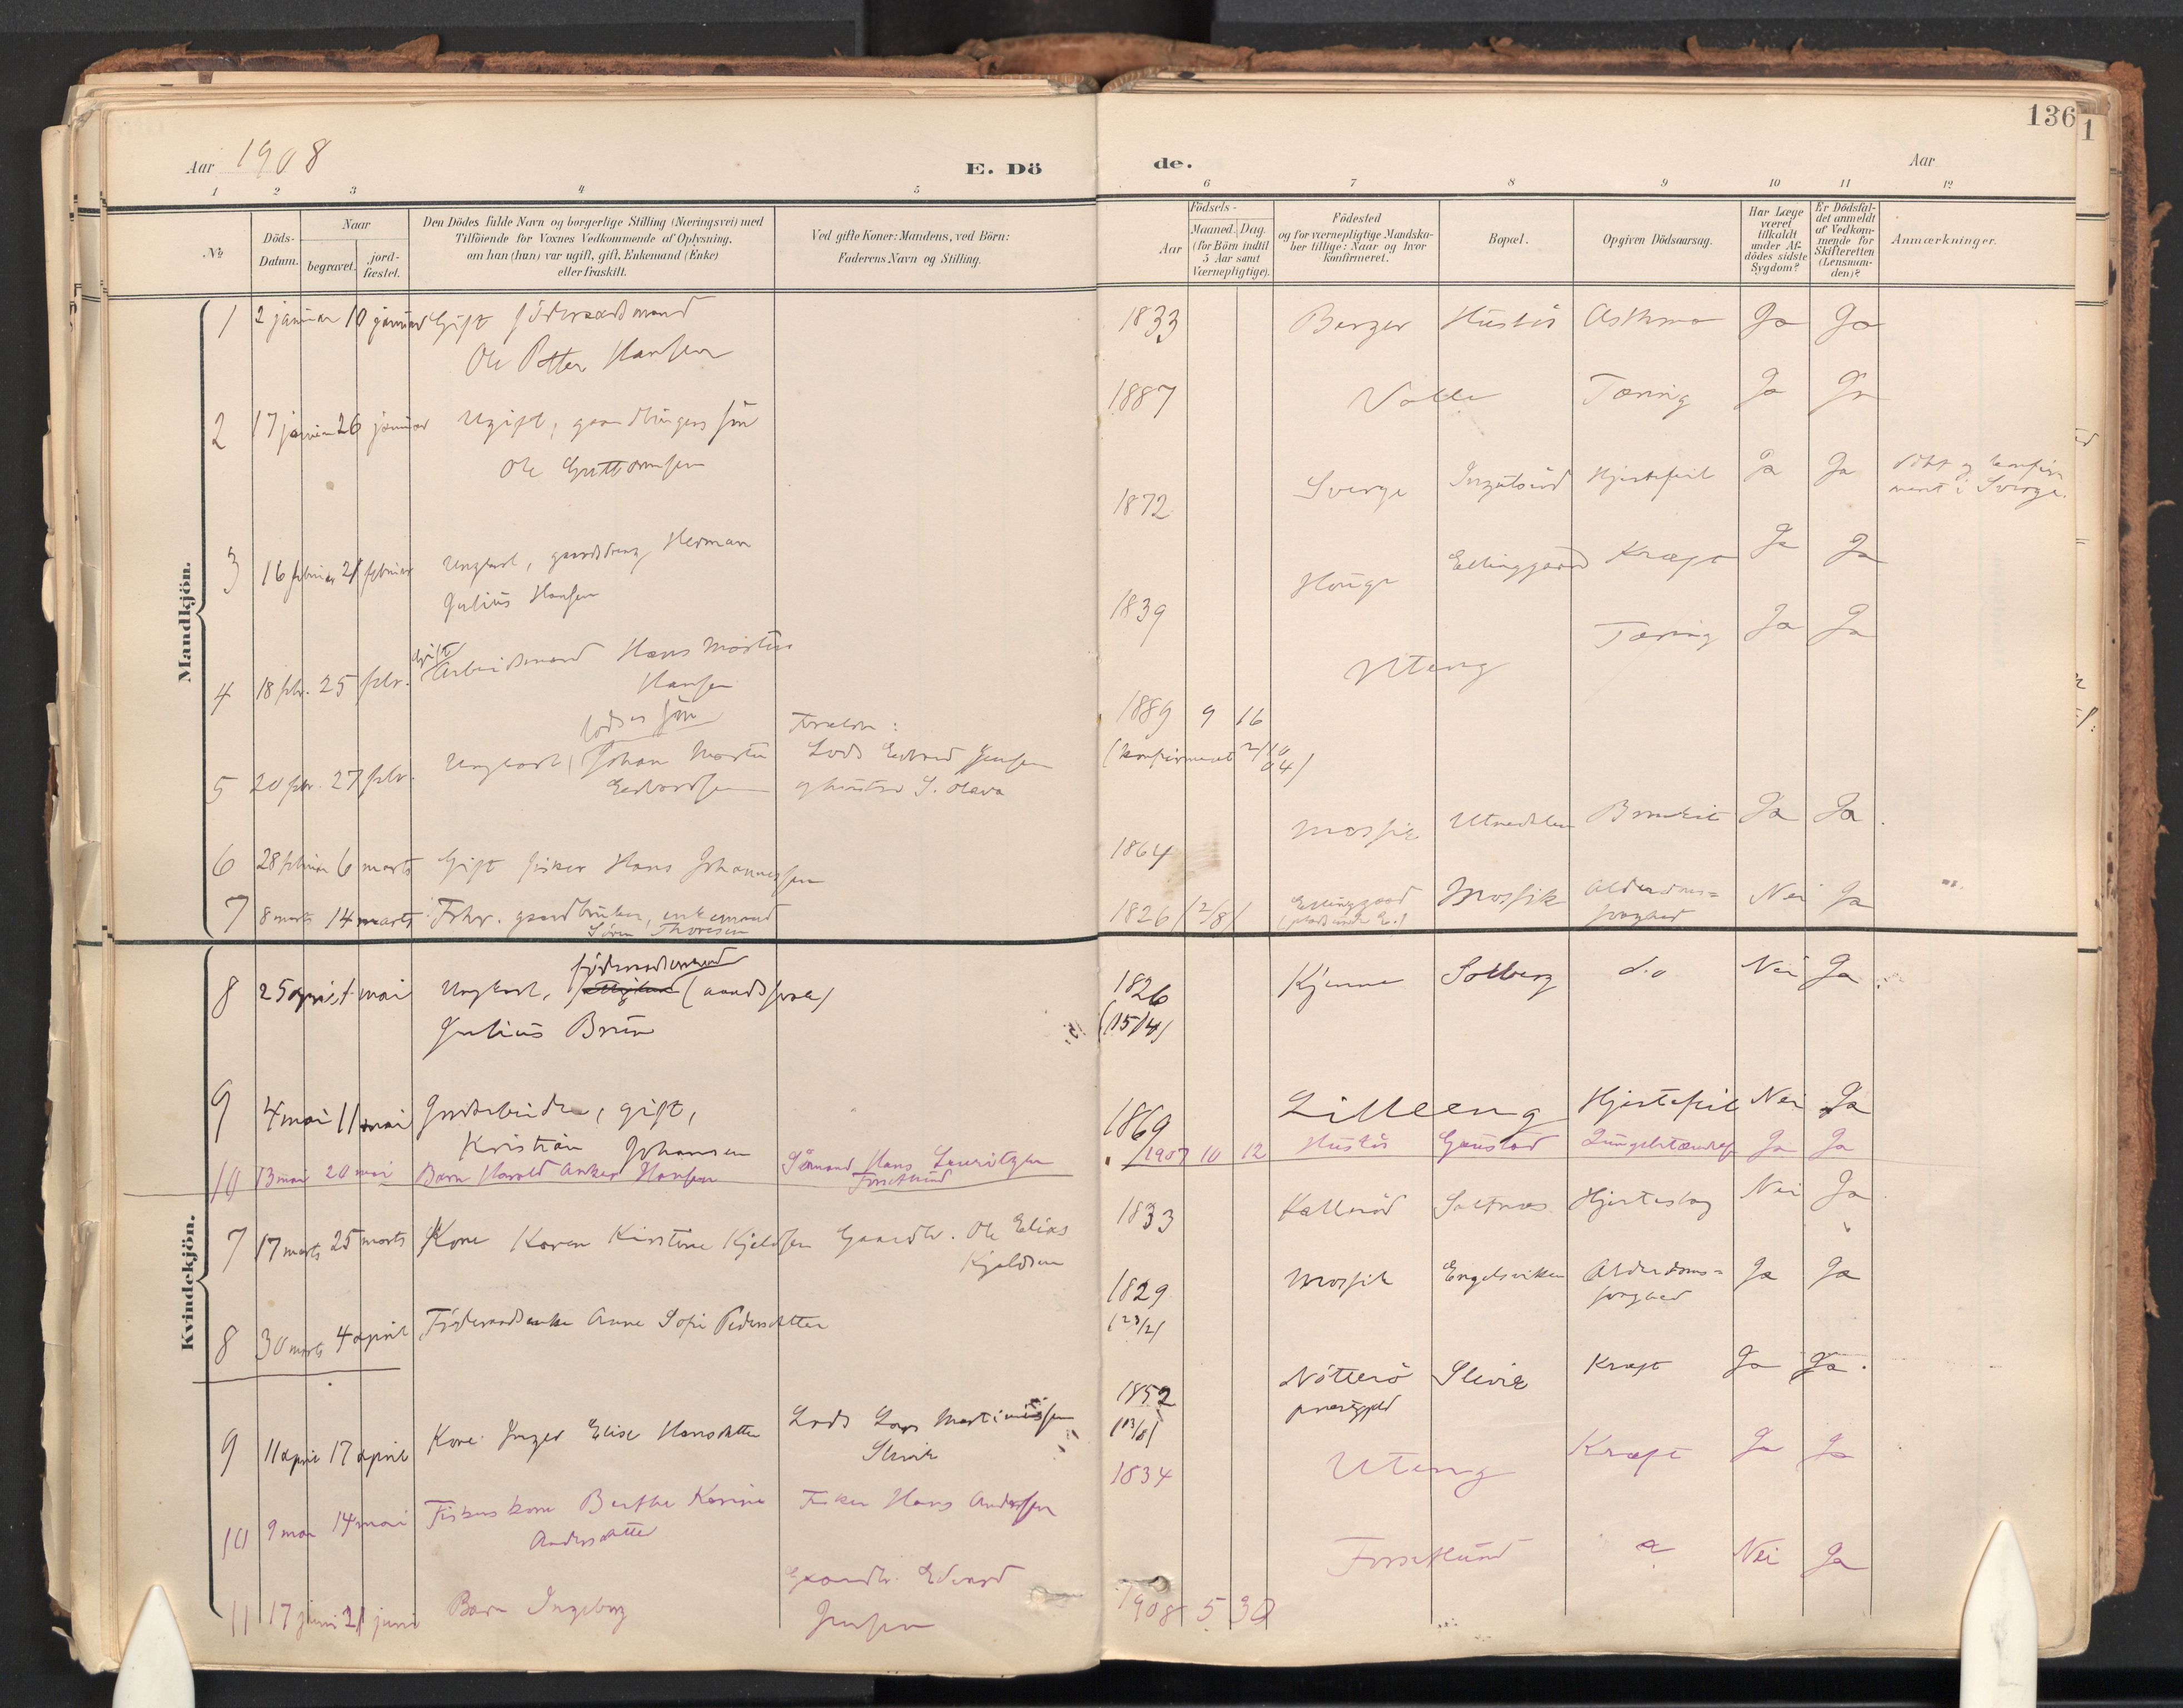 136
1
Aar 1908
E. Dö
de.
Aar
1 2 3 4 5 6 7 8 9 10 11 12
No
Döds-
Datum.
Naar
begravet.
jord-
fæstet.
Den Dödes fulde Navn og borgerlige Stilling (Næringsvei) med
Tilföiende for Voxnes Vedkommende af Oplysning,
om han (hun) var ugift, gift, Enkemand (Enke)
eller fraskilt.
Ved gifte Koner: Mandens, ved Börn:
Faderens Navn og Stilling.
Födsels-
Aar
Maaned. Dag.
(for Börn indtil
5 Aar samt
Værnepligtige).
Födested
og for værnepligtige Mandska-
ber tillige: Naar og hvor
konfirmeret.
Bopæl.
Opgiven Dödsaarsag.
Har Læge
været
tilkaldt
under Af-
dödes sidste
Sygdom?
Er Dödsfal-
det anmeldt
af Vedkom-
mende for
Skifteretten
(Lensman-
den)?
Anmærkninger.
Mandkjön.
1 2 januar 10 januar Gift föderaadsmand 1833 Berger Husløs Asthma Ja Ja
Ole Petter Hansen
2 17 januar 26 januar Ugift, gaardbrugers søn 1887 Valle Tæring Ja Ja
Ole Guttormsen
3 16 februar 21 februar Ungkarl, gaardsdreng Herman 1872 Sverge Hjertefeil Ja Ja døbt og konfir
Julius Hansen meret i Sverge.
4 18 febr. 25 febr. Gift Arbeidsmand Hans Martin 1839 Hauge Ellinggaard Kræft Ja Ja
Hansen
lodses søn
5 20 febr. 27 febr. Ungkarl, Johan Martin Forældre: 1889 9 16 Uteng Tæring Ja Ja
Edvardsen Lods Edvard Jensen (konfirmeret 2/10 04)
og hustru S. Olava
6 28 februar 6 marts Gift fisker Hans Johannessen 1864 Mossik Utnedklen Ja Ja
7 8 marts 14 marts Fhv. gaardbruker, enkemand 1826 (2/8) Ellinggaard Mossik Alderdoms= Nei Ja
Søren Thoresen svaghed
8 25 april 1. mai Ungkarl, föderaadsmand (aandssvak) 1826 Kjenne Solberg d.o Nei Ja
Julius Brun (15/4)
9 4 mai 11 mai Gaardarbeider, gift, 1869 Lilleeng Hjertefeil Nei Ja
Kristian Johansen
10 13 mai 20 mai Barn Harald Anker Hansen Sømand Hans Lauritzen 1907 10 12 Husløs Gaustad Lungebetændelse Ja Ja
Forsetlund
Kvindekjön.
7 17 marts 25 marts Kone Karen Kirstine Kjeldsen Gaardbr. Ole Elias 1833 Kallerød Saltnæs Hjerteslag Nei Ja
Kjeldsen
8 30 marts 4 april Föderaadsenke Anne Sofie Pedersdatter 1829 Mossik Engelsviken Alderdoms= Ja Ja
(23/2) svaghed
9 11 april 17 april Kone Inger Elise Hansdatter Lods Lars Martiniussen 1852 Nötterö Slevik Kræft Ja Ja.
Slevik (13/8) præstegjeld
10 9 mai 14 mai Fiskers kone Berthe Karine Fisker Hans Andersen 1834 Uteng Kræft Ja Ja
Andersdatter
11 17 juni 21 juni Barn Ingeborg Gaardbr. Edvard 1908 5 30 Forsetlund Nei Ja
Jensen